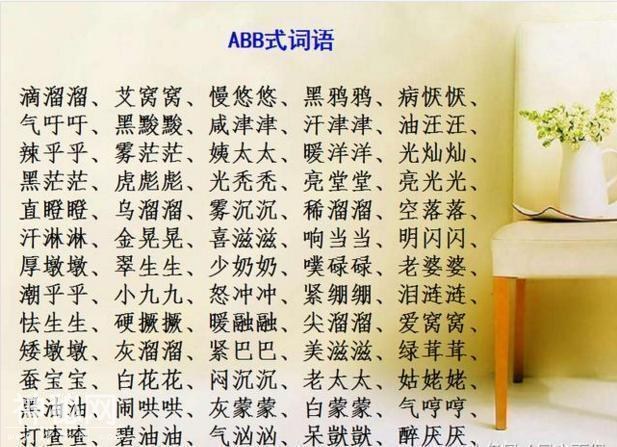 ABB式词语
滴溜溜、艾窝窝、慢悠悠、黑鸦鸦、病恹恹、
气吁吁、黑黢黢、咸津津、汗津津、油汪汪、
辣乎乎、雾茫茫、姨太太、暖洋洋、光灿灿、
黑茫茫、虎彪彪、光秃秃、亮堂堂、亮光光、
直瞪瞪、乌溜溜、雾沉沉、稀溜溜、空落落、
汗淋淋、金晃晃、喜滋滋、响当当、明闪闪、
厚墩墩、翠生生、少奶奶、噗碌碌、老婆婆、
潮乎乎、小九九、怒冲冲、紧绷绷、泪涟涟、
怯生生、硬撅撅、暖融融、尖溜溜、爱窝窝、
矮墩墩、灰溜溜、紧巴巴、美滋滋、绿茸茸、
蚕宝宝、白花花、闷沉沉、老太太、姑姥姥、
黑油油、闹哄哄、灰蒙蒙、白蒙蒙、气哼哼、
打奎奎、碧油油、气汹汹、呆獃獃、醉厌厌、